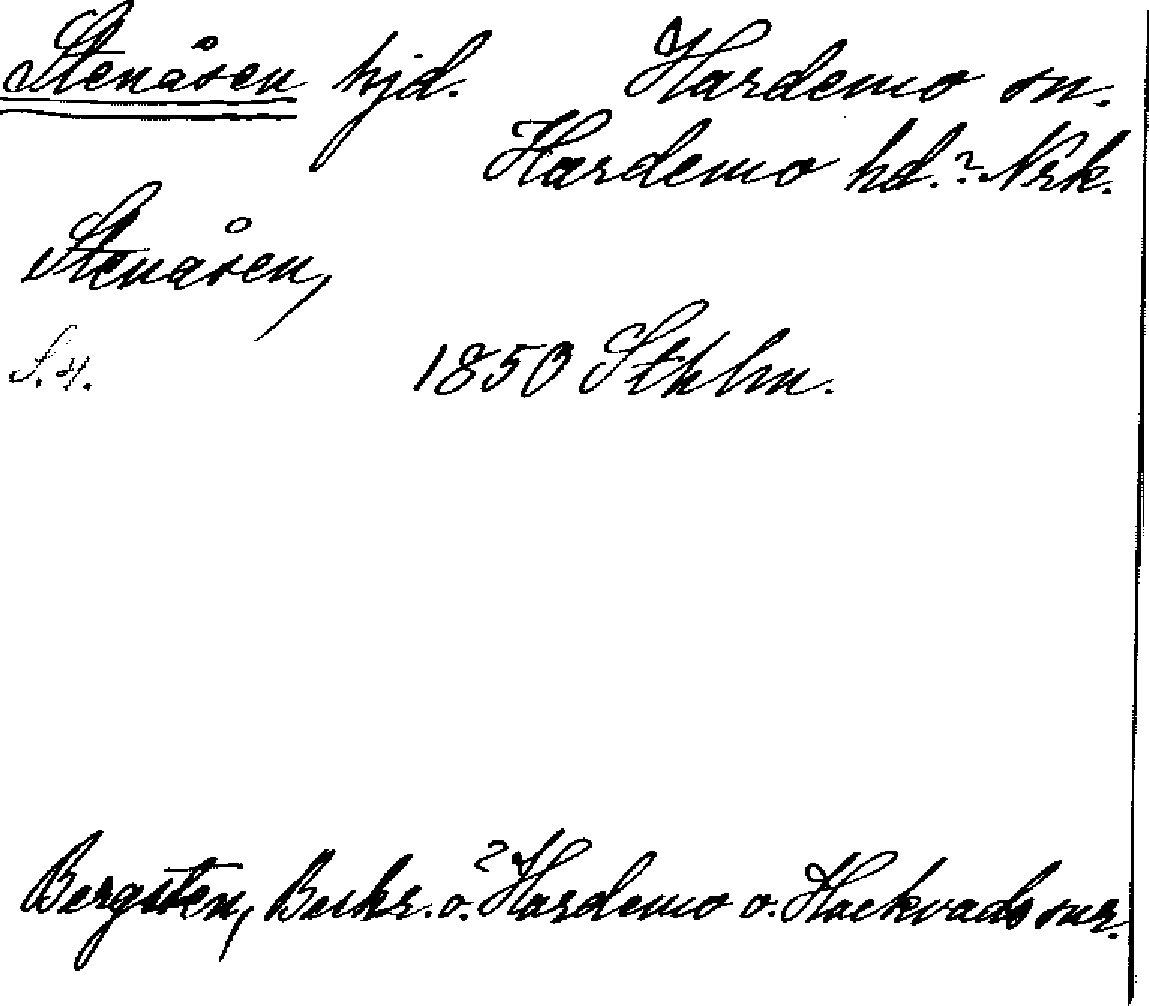 Stenåsen hjd. Hardemo sn.
Hardemo hd. Nrk.
Stenåsen,
S. 4. 1850 Sthlm.
Bergsten, Beskr. o. Hardemo o. Hackvads snr.